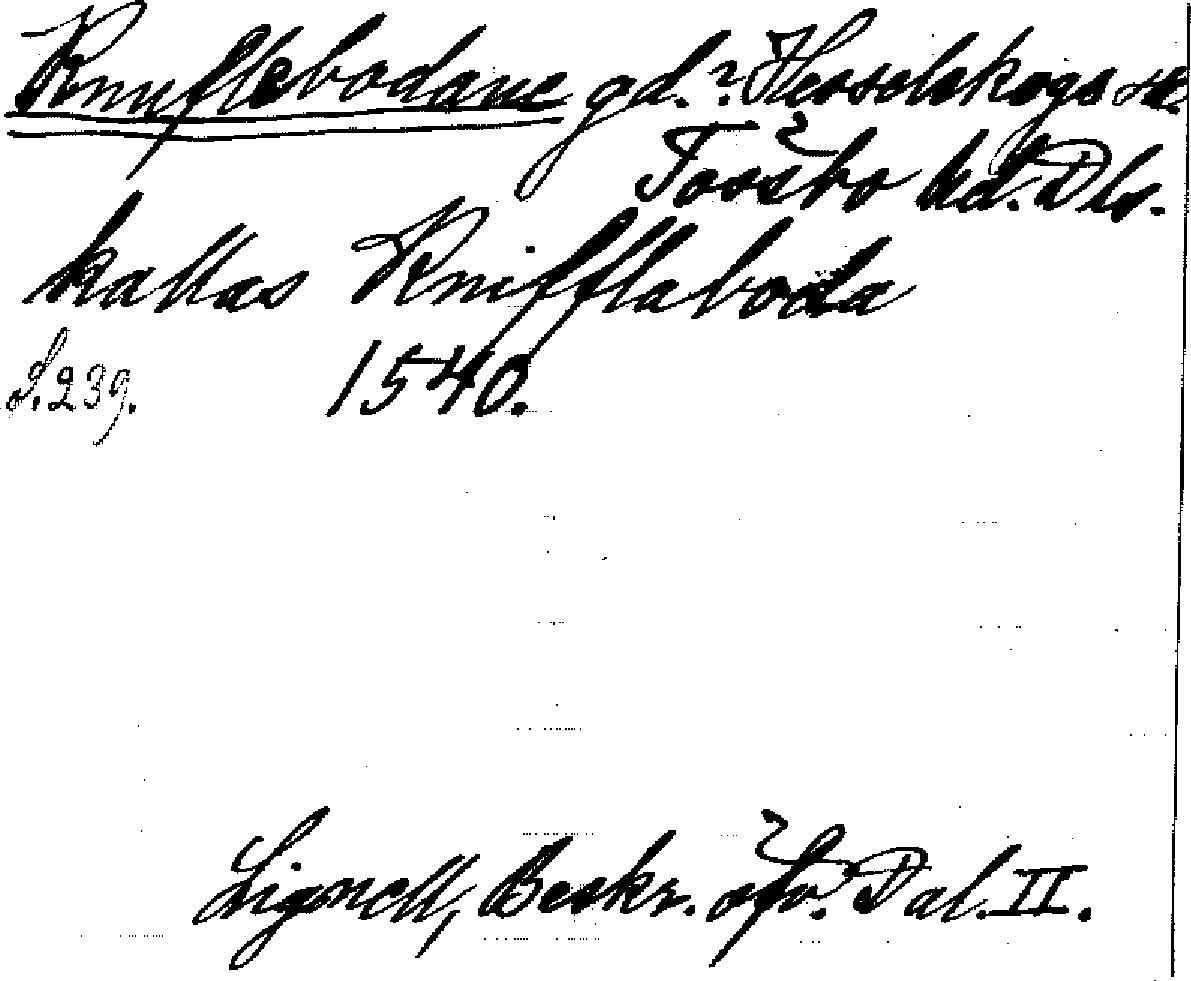 Knuflebodane gd.? Hesselskogs sn.
Tössbo hd. Dls.
kallas Knifflaboda
S. 239. 1540.
Lignell, Beskr. öfv. Dal. II.